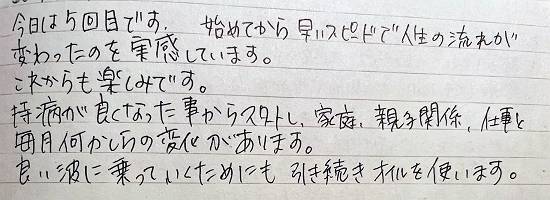 今日は5回目です. 始めてから早いスピードで人生の流れが
変わったのを実感しています。
これからも楽しみです。
持病が良くなった事からスタートし、家庭、親子関係、仕事と
毎月何かしらの変化があります。
良い波に乗っていくためにも引き続きオイルを使います。